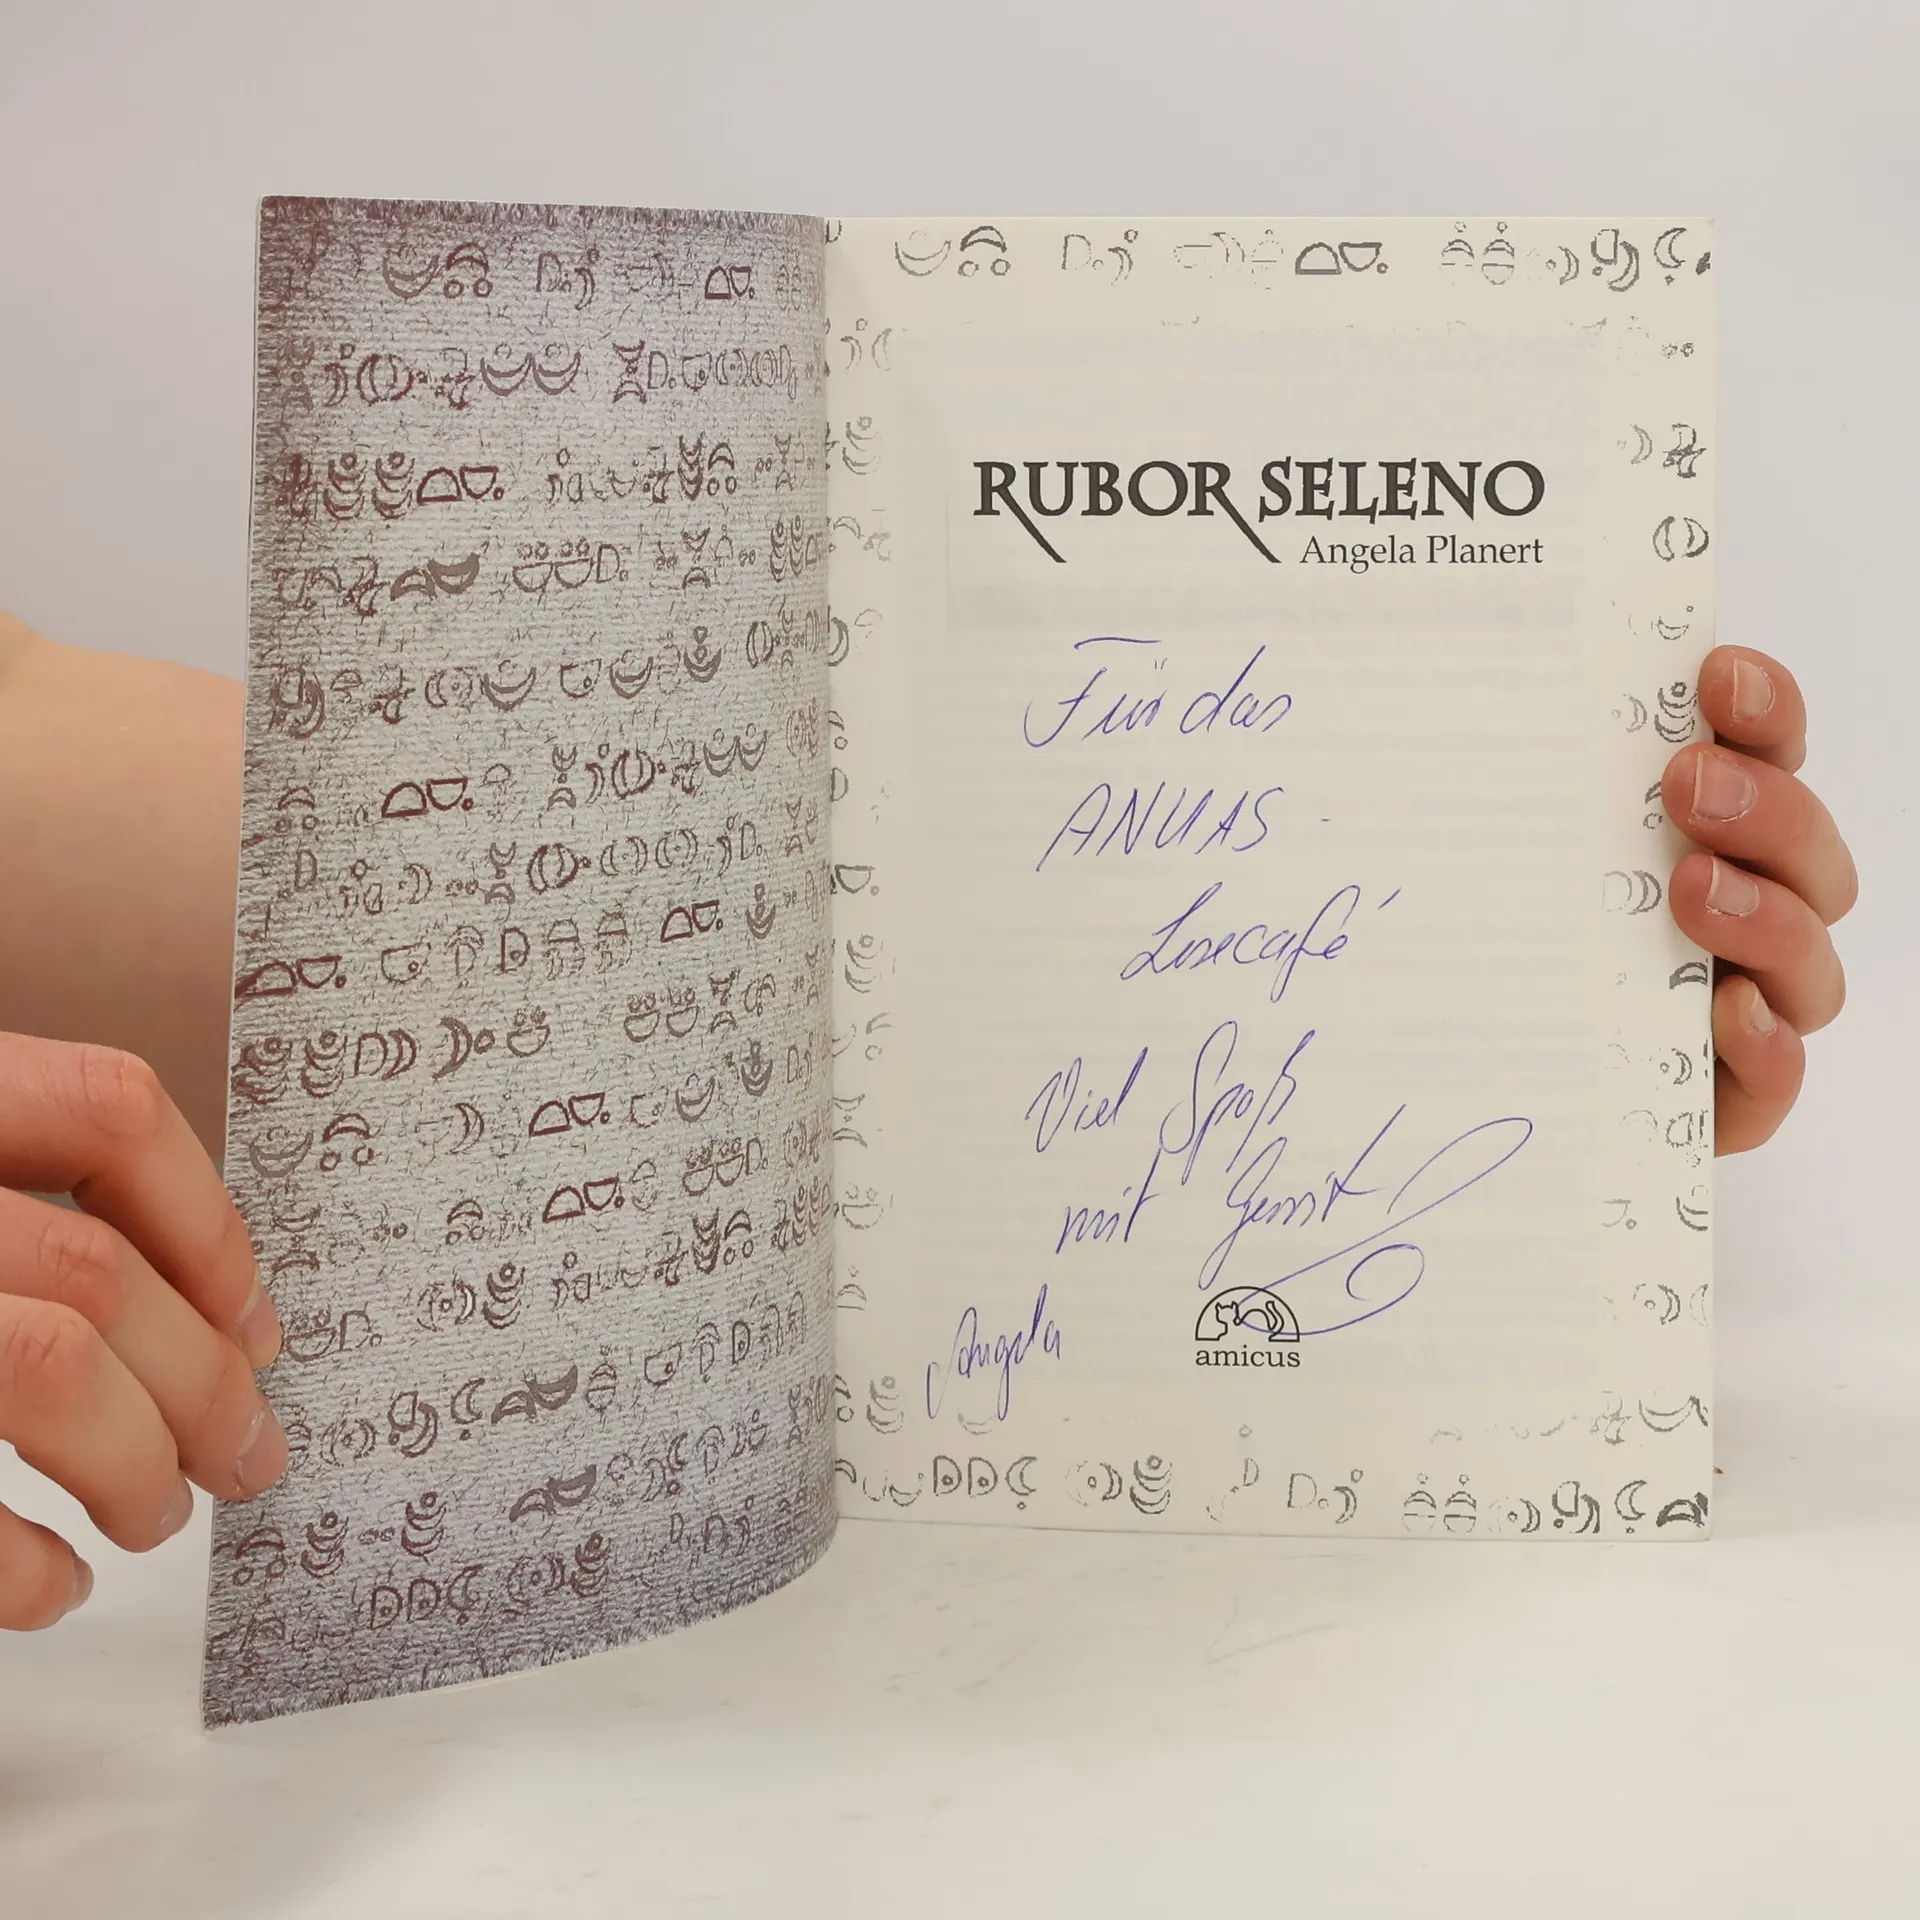 RUBOR SELENO
Angela Planert
Für das
ANUAS -
Lesecafé
Viel Spaß
mit
Angela
amicus